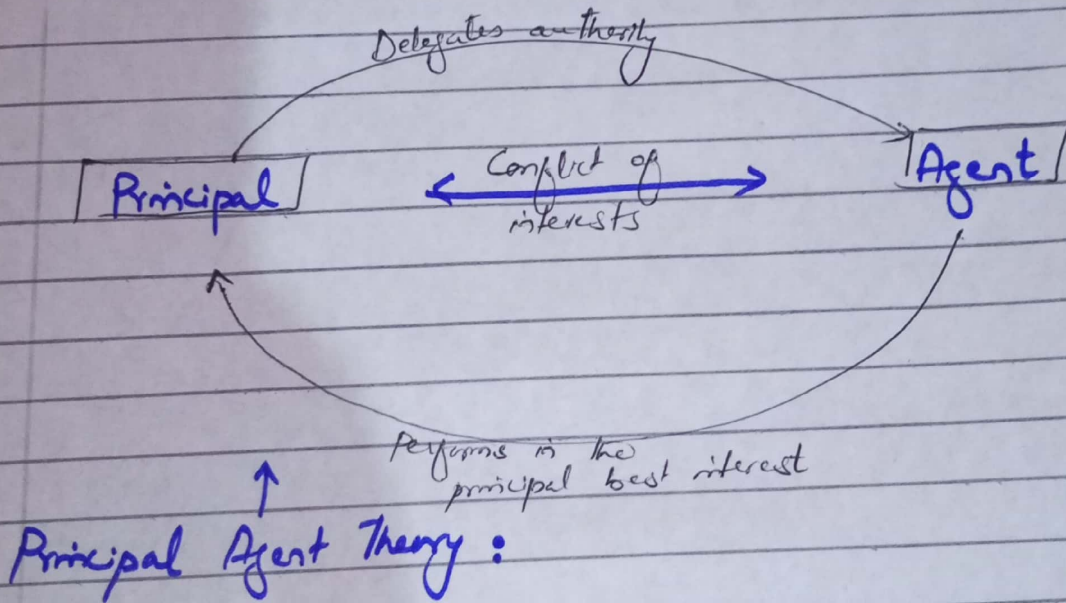 Delegates authority
Principal
Conflict of
interests
Agent
Performs in the
principal best interest
Principal Agent Theory :